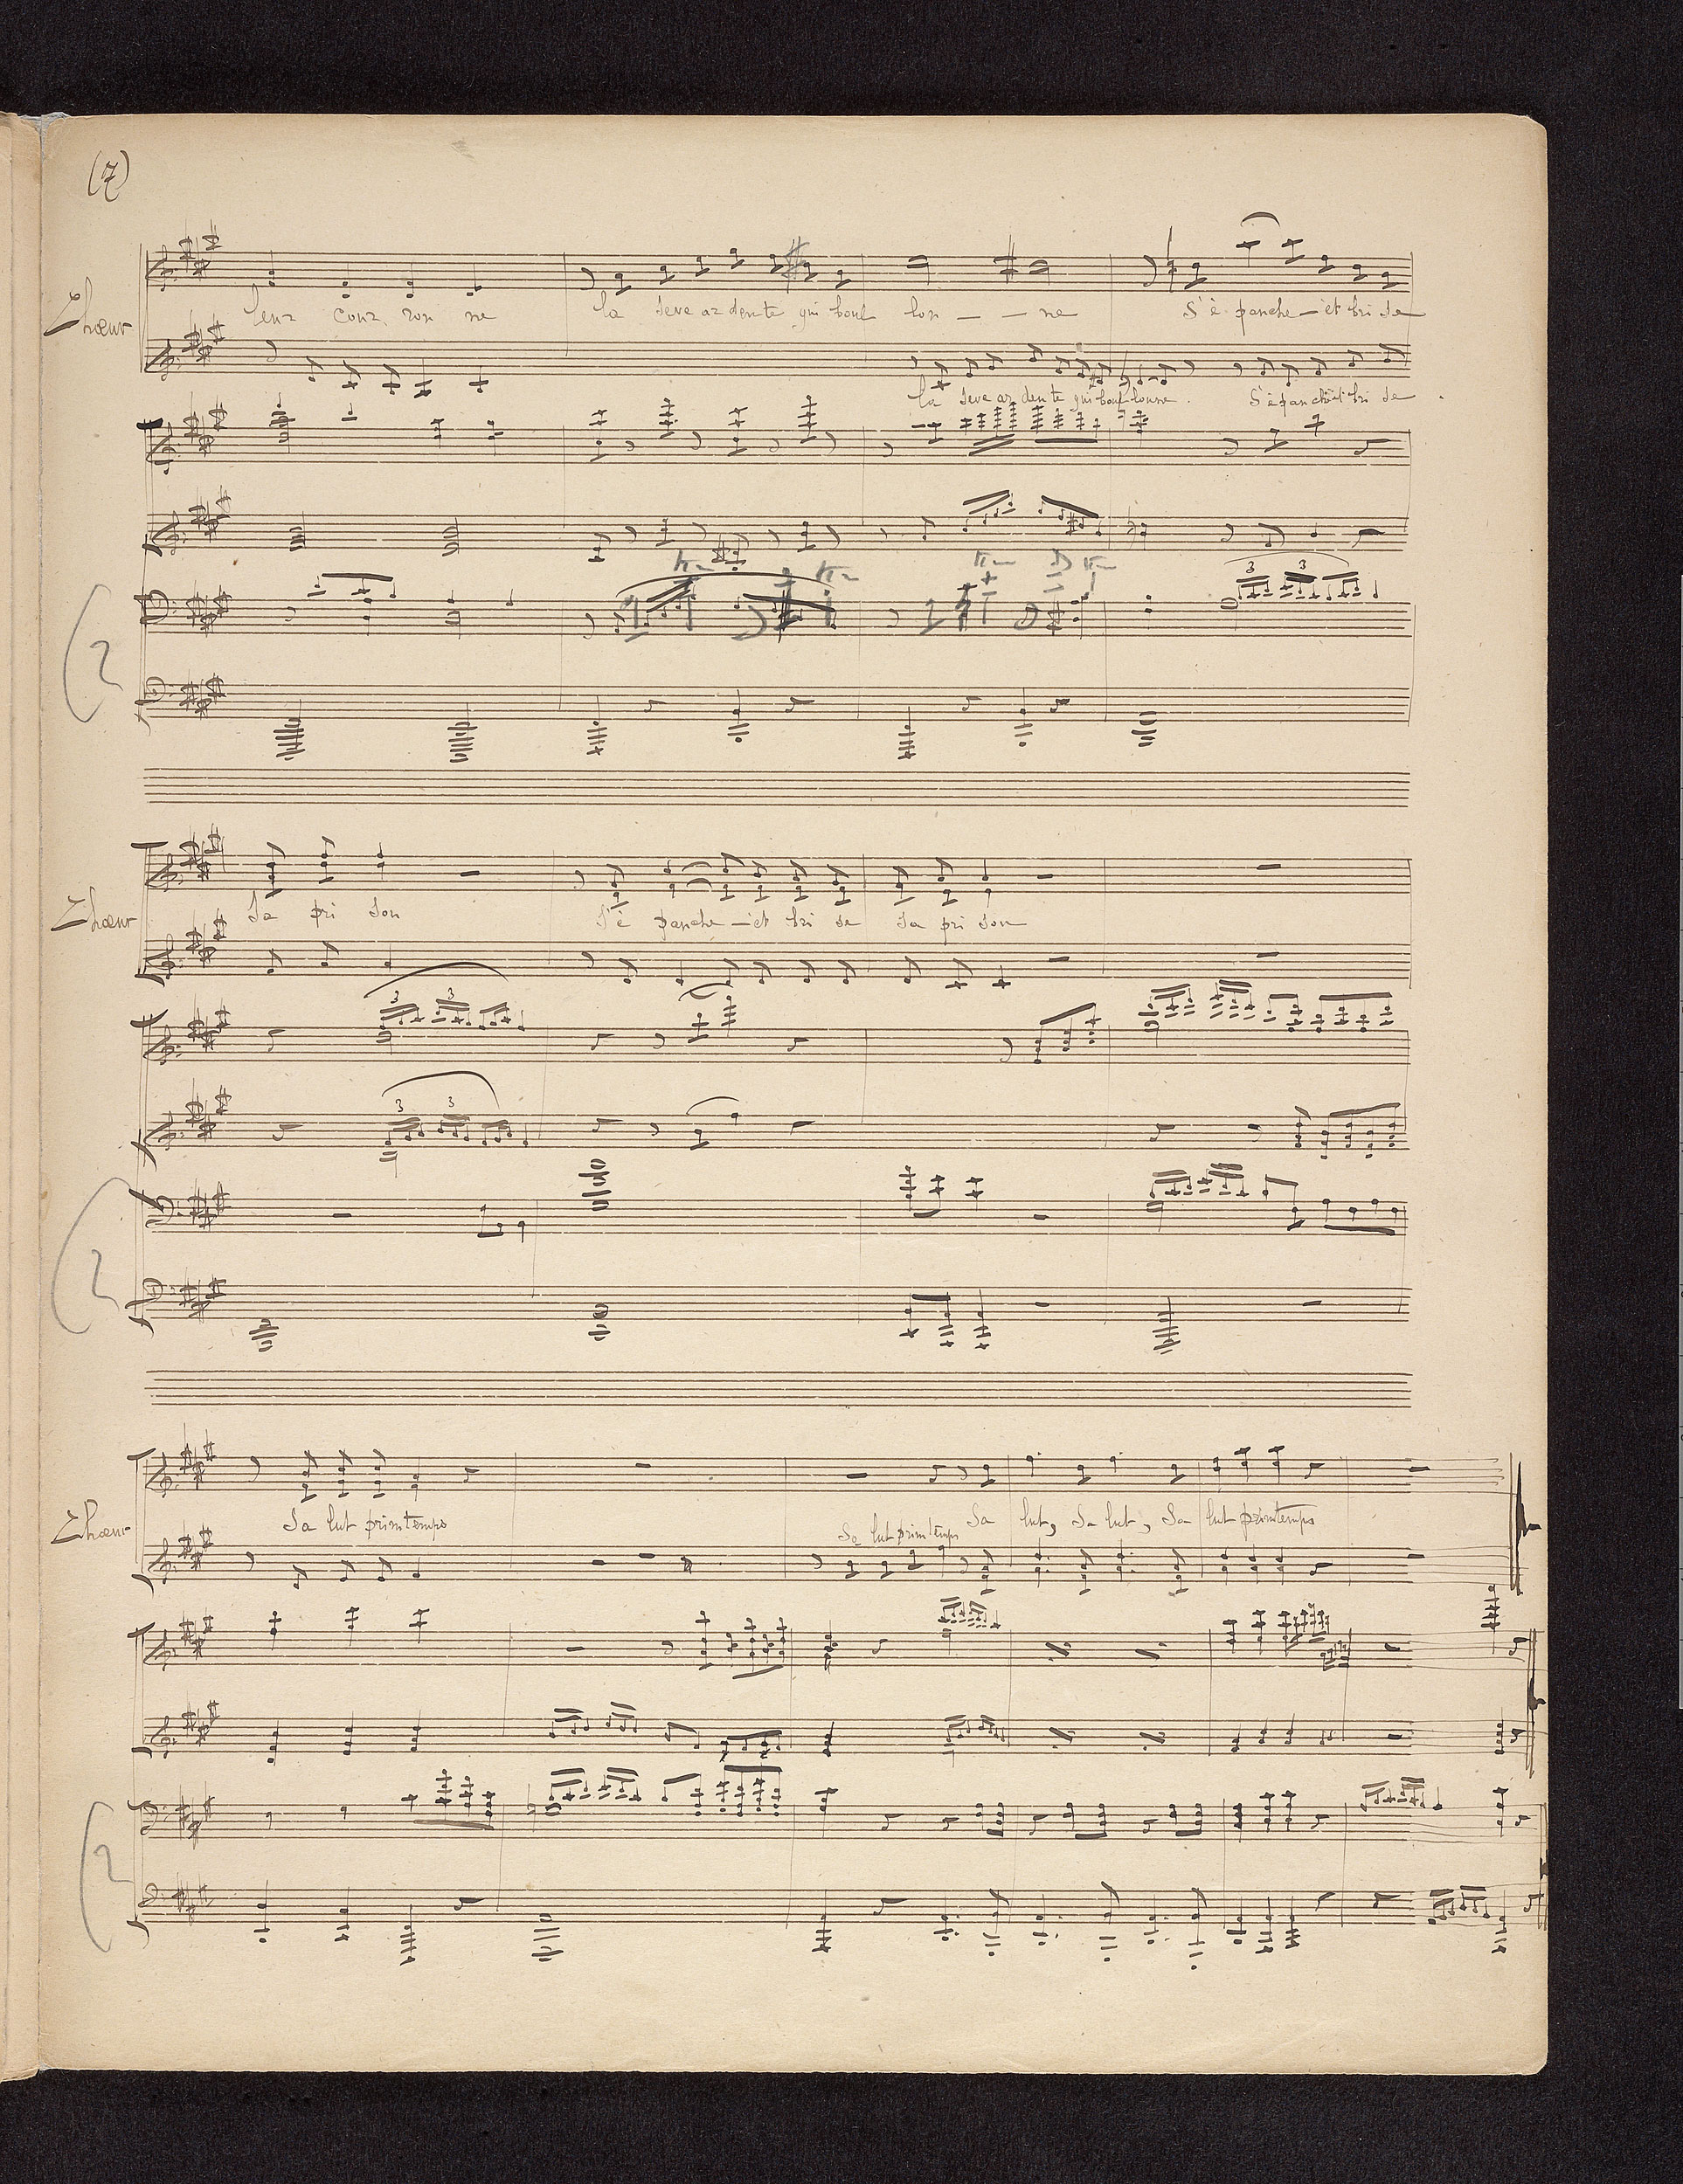 (7)
Chœur
leur cou ron ne la seve ar dente qui bouil lon — — ne S'é panche — et bri se
la seve ar den te qui bouil lonne. S'é panche et bri se
3 3
2
Chœur
Sa pri son S'é panche — et bri se sa pri son
3 3
3 3
2
Chœur
Sa lut printemps Sa lut, Sa lut, Sa lut printemps
Sa lut printemps
2